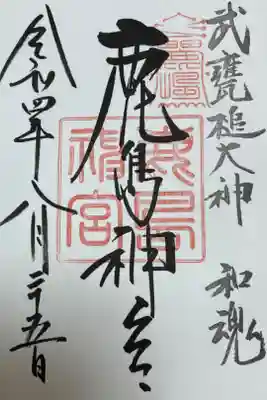 武甕槌大神 和魂
鹿島神宮
鹿島
神宮
令和四年八月二十五日